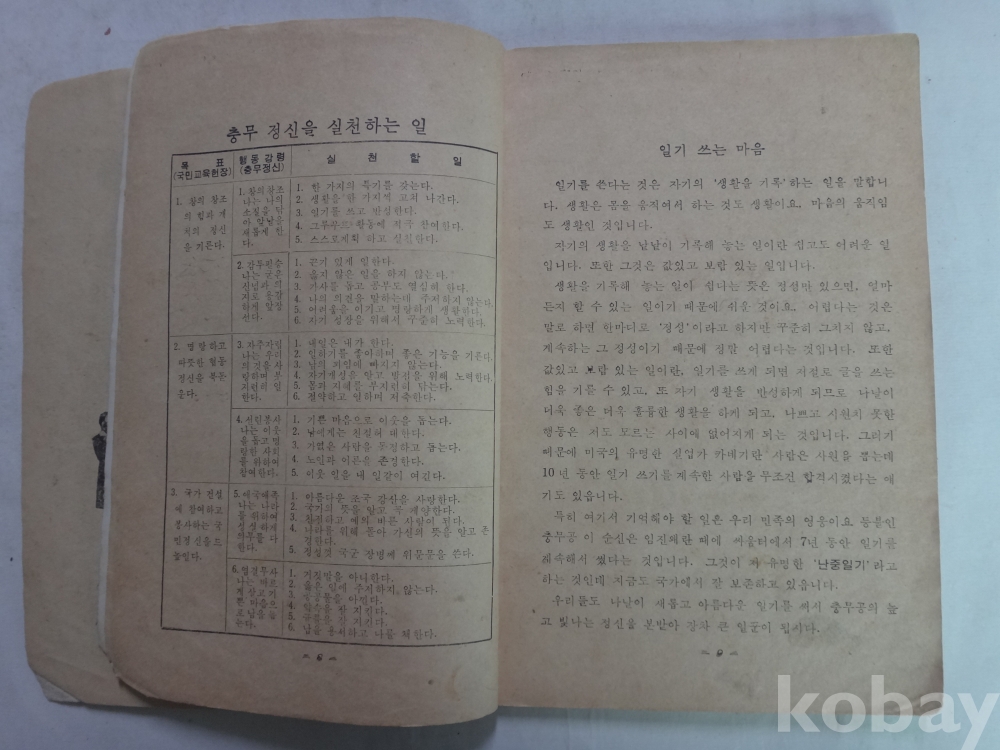 충무 정신을 실천하는 일
목 표
(국민교육헌장)
행동강령
(충무정신)
실 천 할 일
1. 창의 창조
의 힘과 개
척의 정신
을 기른다.
1. 창의창조
나는 나의
소질을 닦
아 앞날을
한다.
1. 한 가지의 특기를 갖는다.
2. 생활을 한 가지씩 고쳐 나간다.
3. 일기를 쓰고 반성한다.
4. 그루우프 활동에 적극 참여한다.
5. 스스로계획 하고 실천한다.
2. 감투필승
나는 굳은
신념과 의
지로 용감
하게 앞장
선다.
1. 끈기 있게 일한다.
2. 옳지 않은 일을 하지 않는다.
3. 가사를 돕고 공부도 열심히 한다.
4. 나의 의견을 말하는데 주저하지않는다.
5. 어려움을 이기고 명랑하게 생활한다.
6. 자기 성장을 위해서 꾸준히 노력한다.
2. 명랑하고
따뜻한 협동
정신을 북돋
운다.
3. 자주자립
나는 우리
의 것을 사
랑하며 부
지런히 일
한다.
1. 내일은 내가 한다.
2. 일하기를 좋아하며 좋은 기능을 기른다.
3. 남의 꾀임에 빠지지 않는다.
4. 자기개성을 알고 발전을 위해 노력한다.
5. 몸과 지혜를 부지런히 닦는다.
6. 절약하고 일하며 저축한다.
4. 서민봉사
나는 이웃
을 돕고 명
랑한 사회
를 위하여
참여한다.
1. 기쁜 마음으로 이웃을 돕는다.
2. 남에게는 친절히 대한다.
3. 가엾은 사람을 동정하고 돕는다.
4. 노인과 어른을 존경한다.
5. 이웃 일을 내 일같이 여긴다.
3. 국가 건설
에 참여하고
봉사하는 국
민정신을 드
높인다.
5. 애국애족
나는 나라
를 위하여
성실하게
의무를 다
한다.
1. 아름다운 조국 강산을 사랑한다.
2. 국기의 뜻을 알고 꼭 게양한다.
3. 친절하고 예의 바른 사람이 된다.
4. 나라를 위해 돌아 가신의 뜻을 알고 존
경한다.
5. 일선 국군 장병께 위문문을 쓴다.
나는 바르
게 살고 기
쁜 마음으
1. 거짓말을 아니한다.
2. 옳은 일에 주저하지 않는다.
3. 공공물을 아낀다.
4. 약속을 잘 지킨다.
5. 규율을 잘 지킨다.
6. 남을 용서하고 나를 책한다.
일기 쓰는 마음
일기를 쓴다는 것은 자기의 '생활을 기록'하는 일을 말합니
다. 생활은 몸을 움직여서 하는 것도 생활이요, 마음의 움직임
도 생활인 것입니다.
자기의 생활을 낱낱이 기록해 놓는 일이란 쉽고도 어려운 일
입니다. 또한 그것은 값있고 보람 있는 일입니다.
생활을 기록해 놓는 일이 쉽다는 뜻은 정성만 있으면, 얼마
든지 할 수 있는 일이기 때문에 쉬운 것이요. 어렵다는 것은
말로 하면 한마디로 '정성'이라고 하지만 꾸준히 그치지 않고,
계속하는 그 정성이기 때문에 정말 어렵다는 것입니다. 또한
값있고 보람 있는 일이란, 일기를 쓰게 되면 저절로 글을 쓰는
힘을 기를 수 있고, 또 자기 생활을 반성하게 되므로 나날이
더욱 좋은 더욱 훌륭한 생활을 하게 되고, 나쁘고 시원치 못한
행동은 저도 모르는 사이에 없어지게 되는 것입니다. 그러기
때문에 미국의 유명한 실업가 카네기란 사람은 사원을 뽑는데
10년 동안 일기 쓰기를 계속한 사람을 무조건 합격시켰다는 얘
기도 있읍니다.
특히 여기서 기억해야 할 일은 우리 민족의 영웅이요 등불인
충무공 이 순신은 임진왜란 때에 싸움터에서 7년 동안 일기를
계속해서 썼다는 것입니다. 그것이 곧 유명한 '난중일기'라고
하는 것인데 지금도 국가에서 잘 보존하고 있읍니다.
우리들도 나날이 새롭고 아름다운 일기를 써서 충무공의 높
고 빛나는 정신을 본받아 장차 큰 일꾼이 됩시다.
— 9 —
kobay